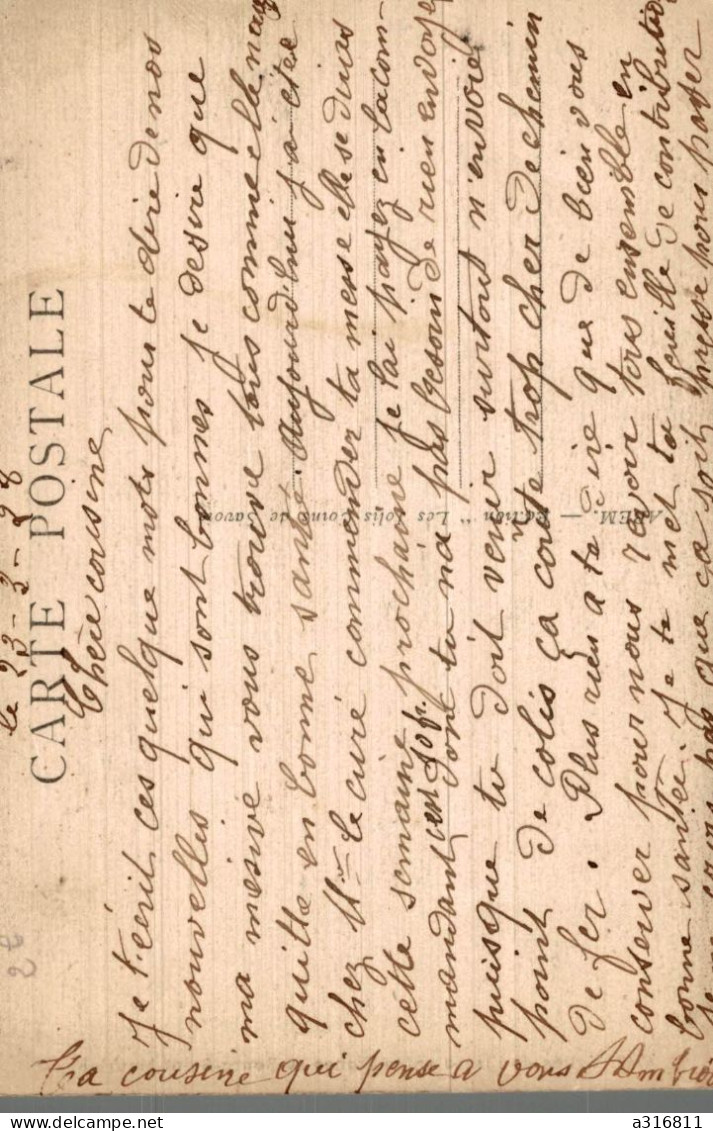 le 23-3-
CARTE POSTALE
Chère cousine
Je t'ecrit ces quelque mots pour te dire de nos
nouvelles qui sont bonnes je desire que
ma mesive vous trouve tous comme elle nous
quitte en bonne santé Aujourd'hui j'ai étée
chez Mr le curé commander ta messe elle se diras
cette semaine prochaine je lai payez en la com-
mandant cest 10 f. dont tu na pas besoin de rien envoyer
puisque tu doit venir surtout n'envoie
point de colis ça coute trop cher de chemin
de fer. Plus rien a te dire que de bien vous
conserver pour nous revoir tous ensemble en
bonne santée. Je te met ta feuille de contribution
je ne crois pas que ça soit presse pour payer
Ta cousine qui pense a vous
AREM. — Edition "Les Jolis Coins de Savoie
2€
a316811